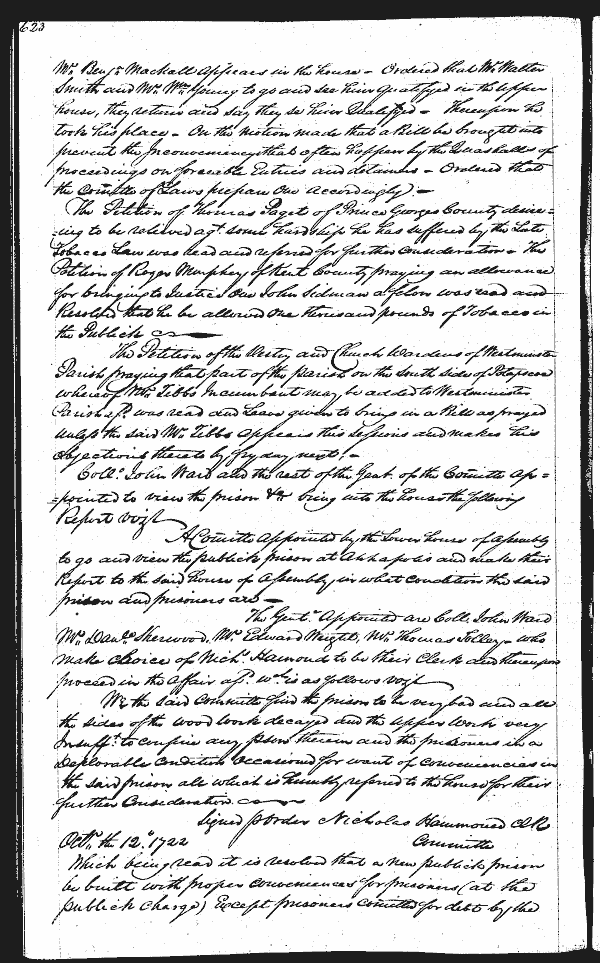 623
Mr. Benja. Mackall Appears in the house - Ordered that Mr. Walter
Smith and Mr. Wm. Young to go and see him Qualifyed in the upper
house, they return and say they se him Qualifyed - Thereupon he
took his place - On the motion made that a Bill be brought into
prevent the Inconveniency that often happen by the Quashalls of
proceedings on forceable Entries and detainers - Ordered that
the Comitte of Laws prepare One Accordingly) -
The Petition of Thomas Paget of Prince Georges County desire=
=ing to be relieved agt. some hardship he has suffered by the Late
Tobacco Law was read and referred for further Consideration - The
Petition of Roger Murphey of Kent County praying an allowance
for bringing to Justice One John Sidman a felon was read and
Resolved that he be allowed One thousand pounds of Tobacco in
the Publick
The Petition of the Vestry and Church Wardens of Westminster
Parish praying that part of the parish on the South side of Patapsco
whereof Mr. Tibbs Incumbent may be added to Westminster
Parish afd. was read and Leave given to bring in a Bill as prayed
unless the said Mr. Tibbs Appears this Sessions and makes his
objections thereto by fryday next. -
Collo. John Ward and the rest of the Gent. of the Comitte Ap=
=pointed to view the prison &ca bring into the house the following
Report vizt
A Comitte Appointed by the Lower house of Assembly
to go and view the publick prison at Annapolis and make their
Report to the said house of Assembly, in what condition the said
prison and prisoners are -
The Gent. Appointed are Coll. John Ward
Mr. Danl. Sherwood, Mr. Edward Wright, Mr. Thomas Tolley - who
make choice of Nichs. Hamond to be their Clerk and thereupon
proceed in the Affair afd. wch. is as follows vizt
We the said Committe find the prison to be very bad and all
the sides of the wood work decayed and the upper work very
Insufft. to confine any pson therein and the prisoners in a
Deplorable Condition Occasioned for want of conveniencies in
the said prison all which is humbly referred to the house for their
further Consideration.
Signed p order Nicholas Hammond Clk
Octr. the 12th. 1722 Committe
Which being read it is resolved that a new publick prison
be built with proper conveniences for prisoners (at the
publick charge) Except prisoners comitted for debt by the